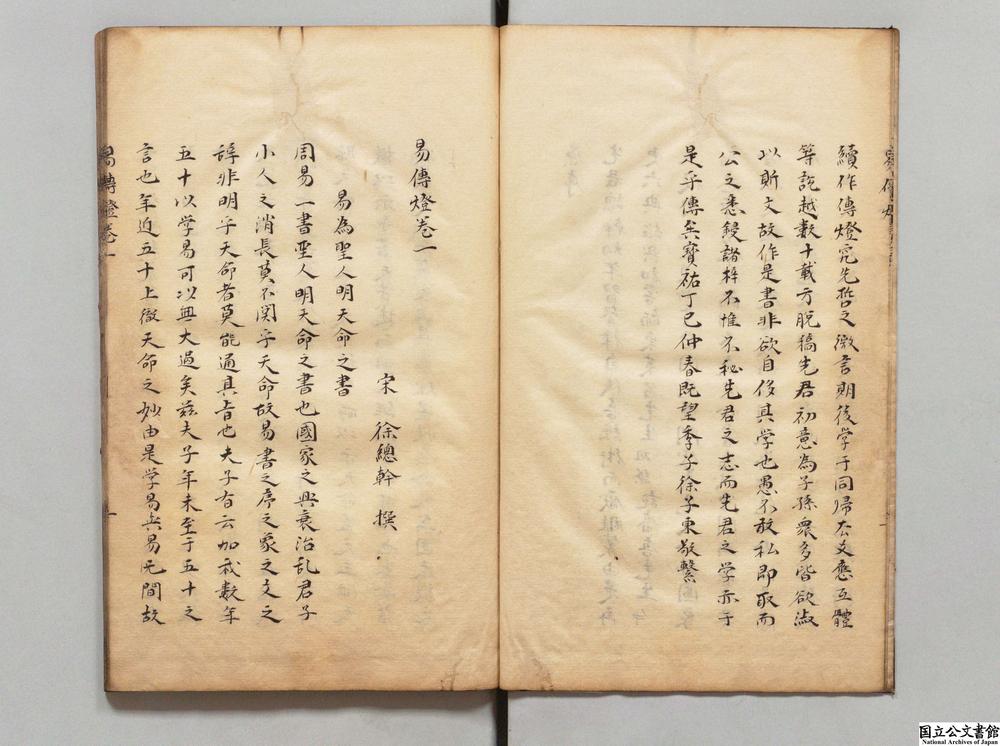 續作傳燈究先哲之微言期後学于同歸太爻應互體
等說越數十載方脫稿先君初意為子孫衆多皆欲淑
以斯文故作是書非欲自侈其学也愚不敢私即取而
公之悉鋟諸梓不惟不秘先君之志而先君之学亦于
是乎傳矣寳祐丁巳仲春既望季子徐子東敬繫
易傳燈卷一
宋 徐總幹 撰
易為聖人明天命之書
周易一書聖人明天命之書也國家之興衰治乱君子
小人之消長莫不関乎天命故易書之序之象之爻之
辞非明乎天命者莫能通其旨也夫子有云加我數年
五十以学易可以無大過矣玆夫子年未至于五十之
言也年迫五十上徹天命之妙由是学易與易无間故
易傳燈卷一
国立公文書館
National Archives of Japan